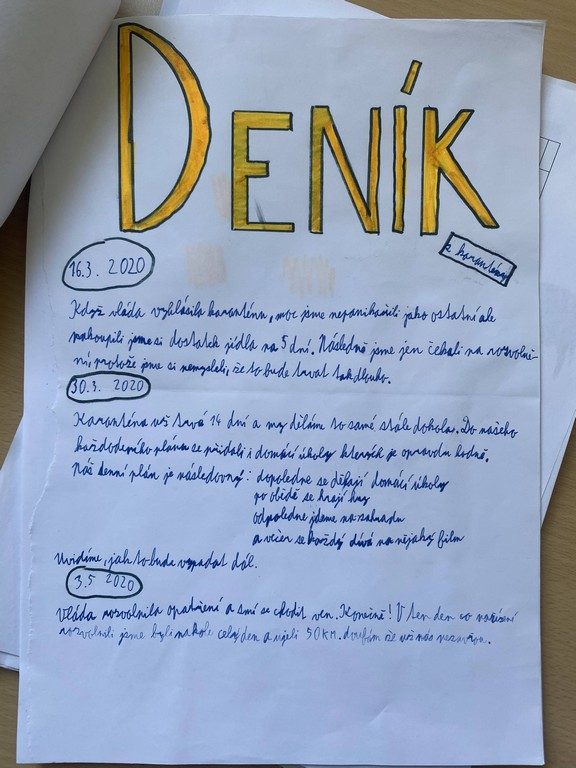 DENÍK
z karantény
16.3. 2020
Když vláda vyhlásila karanténu, moc jsme nepanikařili jako ostatní ale
nakoupili jsme si dostatek jídla na 5 dní. Následně jsme jen čekali na rozvolně-
ní, protože jsme si nemysleli, že to bude trvat tak dlouho.
30.3. 2020
Karanténa už trvá 14 dní a my dělám to samé stále dokola. Do našeho
každodeního plánu se přidali i domácí úkoly kterých je opravdu hodně.
Náš denní plán je následovný: dopoledne se dělají domácí úkoly
po obědě se hrají hry
odpoledne jdeme na zahradu
a večer se každý dívá na nějaký film
Uvidíme, jak to bude vypadat dál.
3.5 2020
Vláda rozvolnila opatření a smí se chodit ven. Konečně! V ten den co nařízení
rozvolnili jsme byli na kole celý den a ujeli 50 KM. doufám že už nás nezavřou.